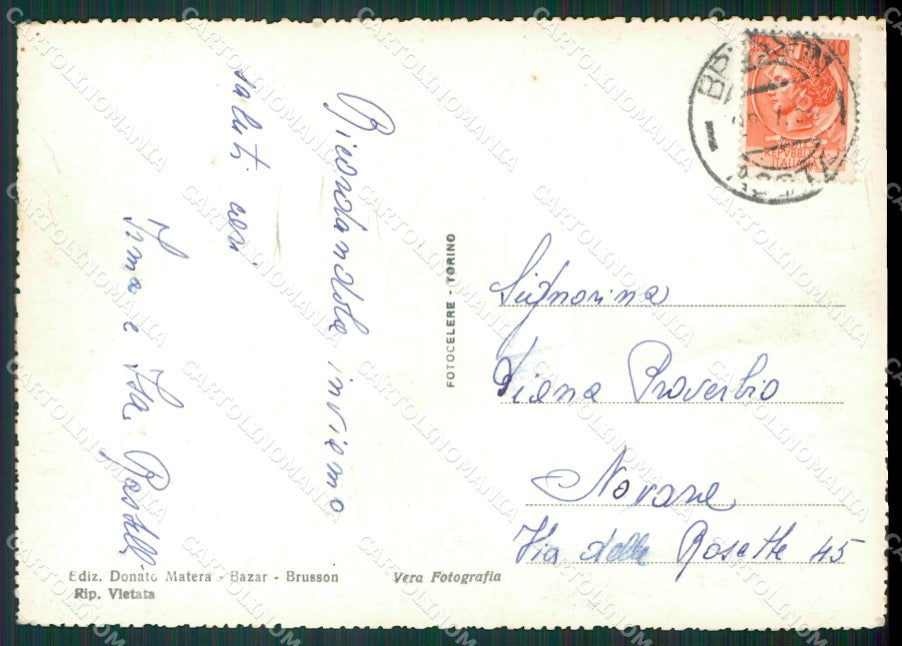 Ricordandola inviamo
saluti cari
Irma e Isa
BRUSSON
AOSTA
REPVBBLICA
ITALIANA
FOTOCELERE - TORINO
Signorina
Diana Proverbio
Novara
Via delle Rosette 45
Ediz. Donato Matera - Bazar - Brusson
Rip. Vietata
Vera Fotografia
CARTOLINOMANIA